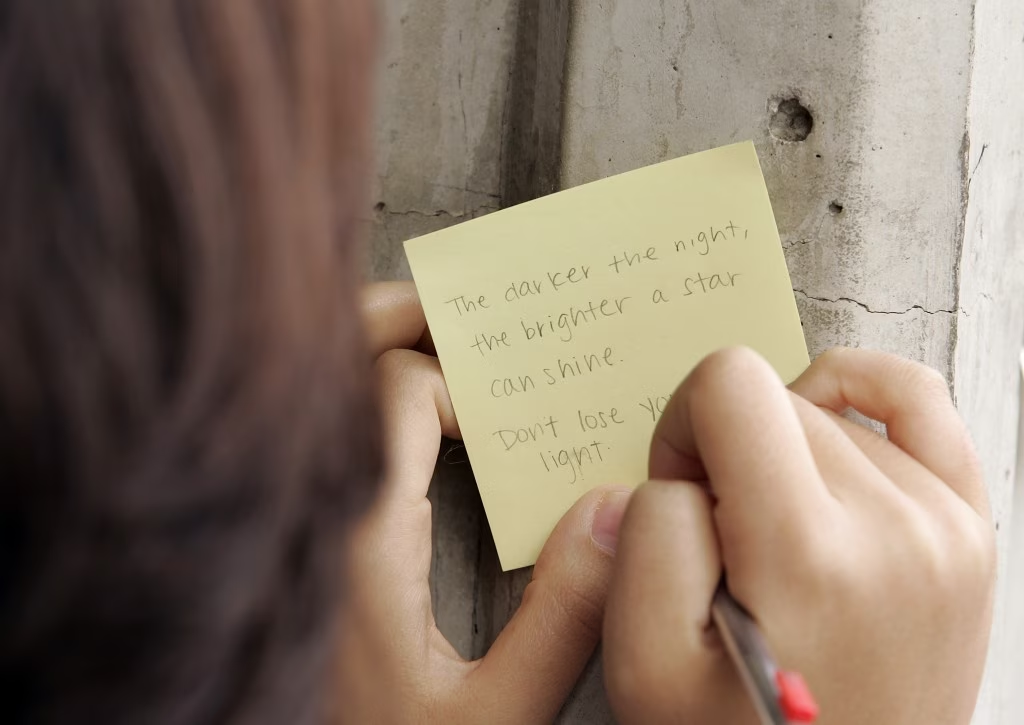 The darker the night,
the brighter a star
can shine.
Don't lose yo
light.